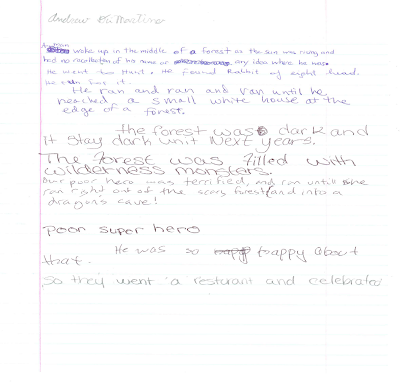 Andrew
woke up in the middle of a forest as the sun was rising and
had no recollection of his name or any idea where he was.
He went too Hunt. He found Rabbit of eight head.
He ran and ran and ran until he
reached a small white house at the
edge of a forest.
the forest was dark and
it stay dark unit Next years.
The Forest was filled with
wilderness monsters.
Our poor hero was terrified, and ran until he
ran right out of the scary forest and into a
dragon's cave!
Poor super hero
He was so happy about
that.
So they went a resturant and celebrated